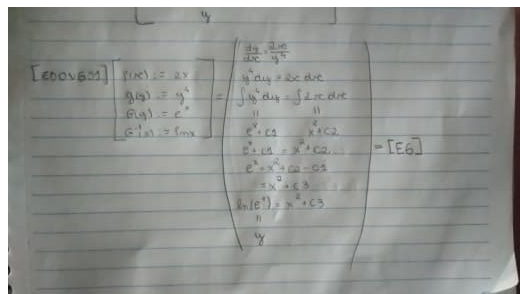 y
[EDOVGS1] f(x) := 2x
g(y) := y⁴
G(y) := eˣ
G⁻¹(x) := lnx
=
dy/dx = 2x/y⁴
y⁴dy = 2x dx
∫y⁴dy = ∫2x dx
" "
eˣ+c1 x²+c2
eˣ+c1 = x²+c2
eˣ = x²+c2-c1
= x²+c3
ln(eˣ) = x²+c3
"
y
= [EG]